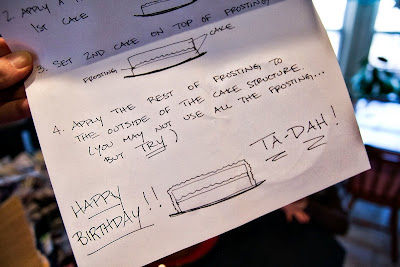 2. APPLY A
1ST CAKE
3. SET 2ND CAKE ON TOP OF FROSTING
CAKE
FROSTING
4. APPLY THE REST OF FROSTING TO
THE OUTSIDE OF THE CAKE STRUCTURE.
(YOU MAY NOT USE ALL THE FROSTING...
BUT TRY)
TA-DAH!
HAPPY
BIRTHDAY!!